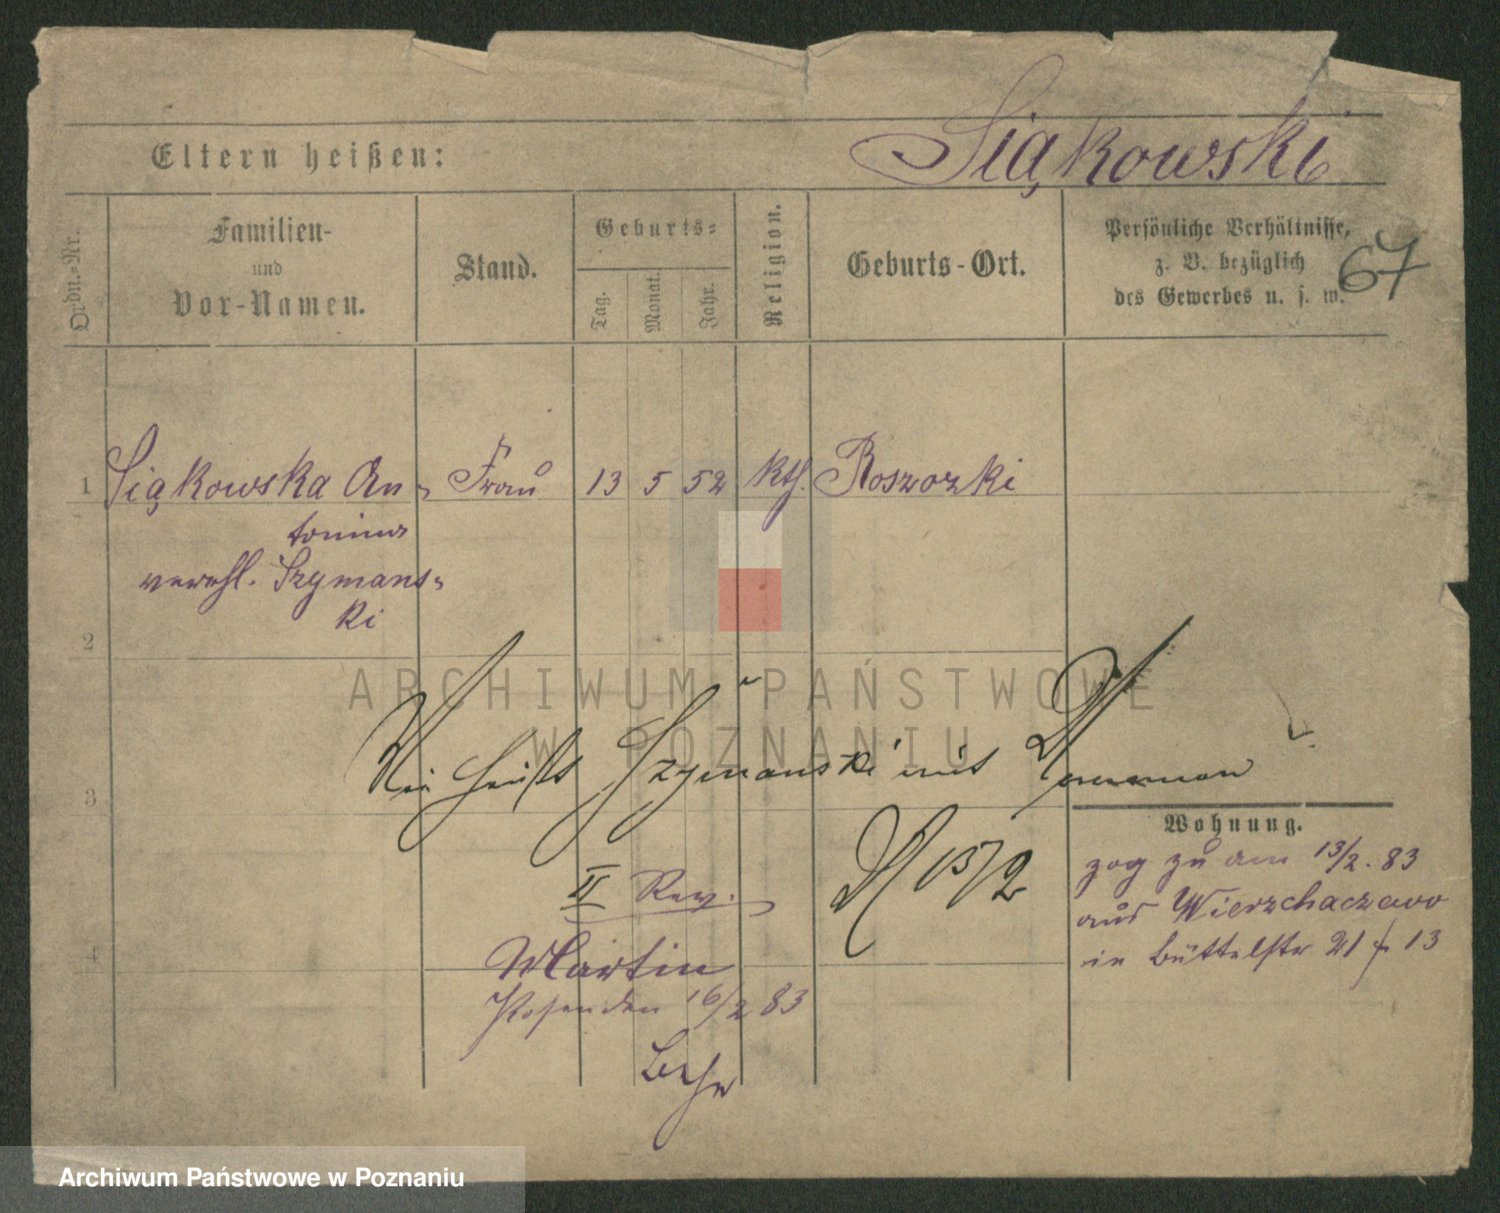 Siąkowski
Eltern heißen:
Ordn.-Nr.
Familien-
und
Vor-Namen.
Stand.
Geburts-
Tag.
Monat.
Jahr.
Religion.
Geburts-Ort.
Persönliche Verhältnisse,
z. B. bezüglich
des Gewerbes u. s. w.
67
1 Siąkowska An- Frau 13 5 52 kth. Roszozki
tonina
verehl. Szymans-
ki
2
ARCHIWUM PAŃSTWOWE
W POZNANIU
Sie heißt Szymanski mit
3
Wohnung.
15/2
zog zu am 13/2. 83
aus Wierzchaczewo
in Büttelstr 21 13
II Rev.
4
Martin
Posen den 16/2 83
Archiwum Państwowe w Poznaniu